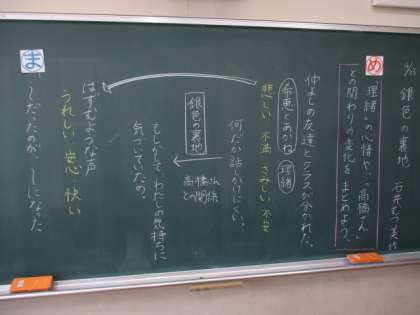 4/23 銀色の裏地 石井むつ美作
め
「理緒」の心情や、「高橋さん」
との関わりの変化を まとめよう。
仲よしの友達とクラスが分かれた。
希恵とあかね 理緒
悲しい 不満 さみしい 不安
何だか話しかけにくい。
高橋さん
との関係
銀色の裏地
もしかして、わたしの気持ちに
気づいていたの。
はずむような声
うれしい 安心 快い
ま
しだったのが、 しになった